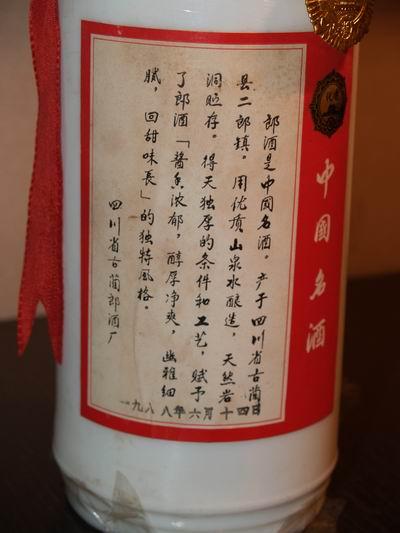 郎酒是中国名酒。产于四川省古蔺
县二郎镇。用优质山泉水酿造，天然岩
洞贮存。得天独厚的条件和工艺，赋予
了郎酒「醬香浓郁，醇厚净爽，幽雅细
腻，回甜味長」的独特風格。
四川省古蔺郎酒厂
一九八八年六月十四日
中國名酒